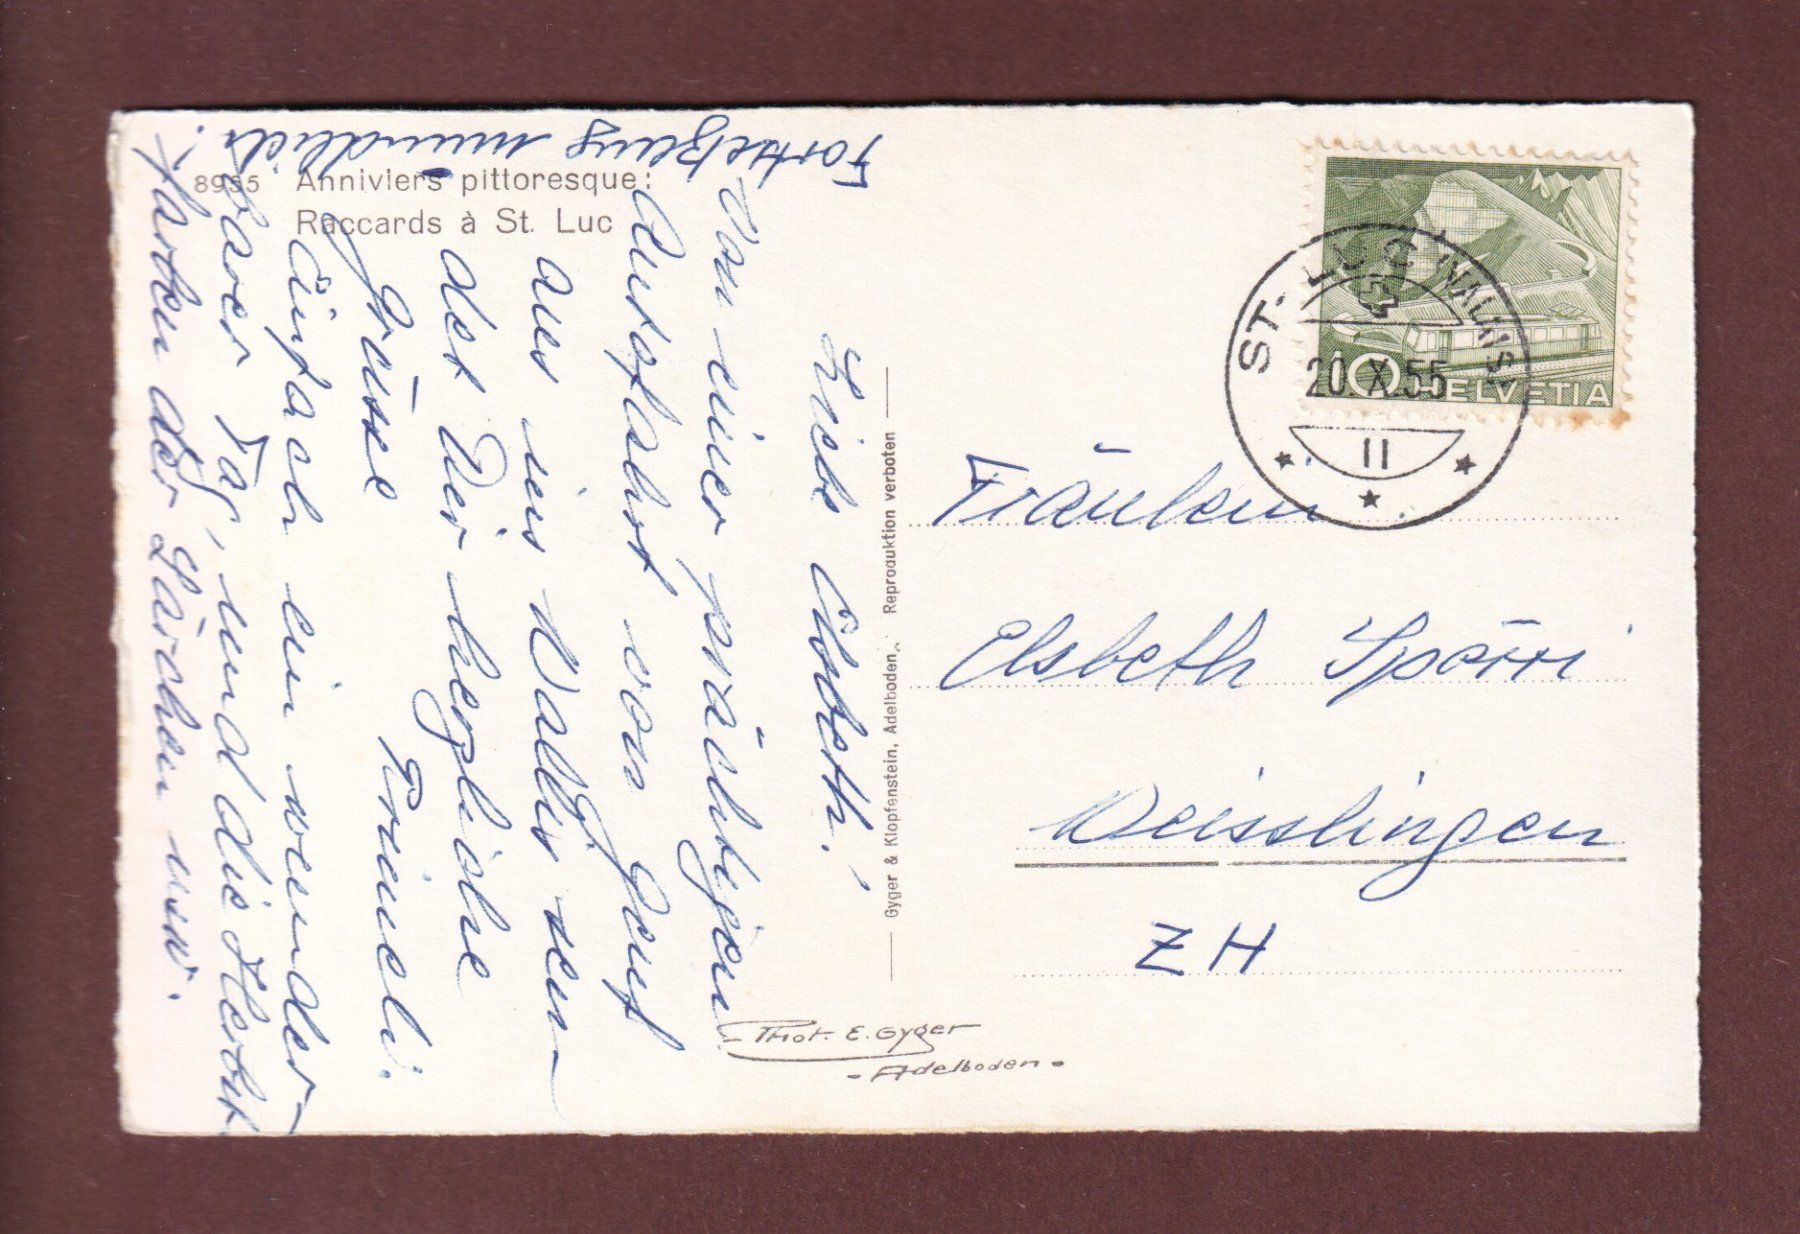 8955 Anniviers pittoresque:
Raccards à St. Luc
Liebe Elsbeth!
Von einer prächtigen
Autofahrt von Genf
aus ins Wallis sen-
det Dir herzliche
Grüsse
Trineli.
Einfach ein wunder-
barer Tag, und die Herbst-
farben der Lärchen usw.
Fortsetzung mündlich!
Gyger & Klopfenstein, Adelboden. Reproduktion verboten
Phot. E. Gyger
- Adelboden -
HELVETIA
10
ST. LUC (WALLIS)
20.X.55
11
Fräulein
Elsbeth Spörri
Weisslingen
ZH